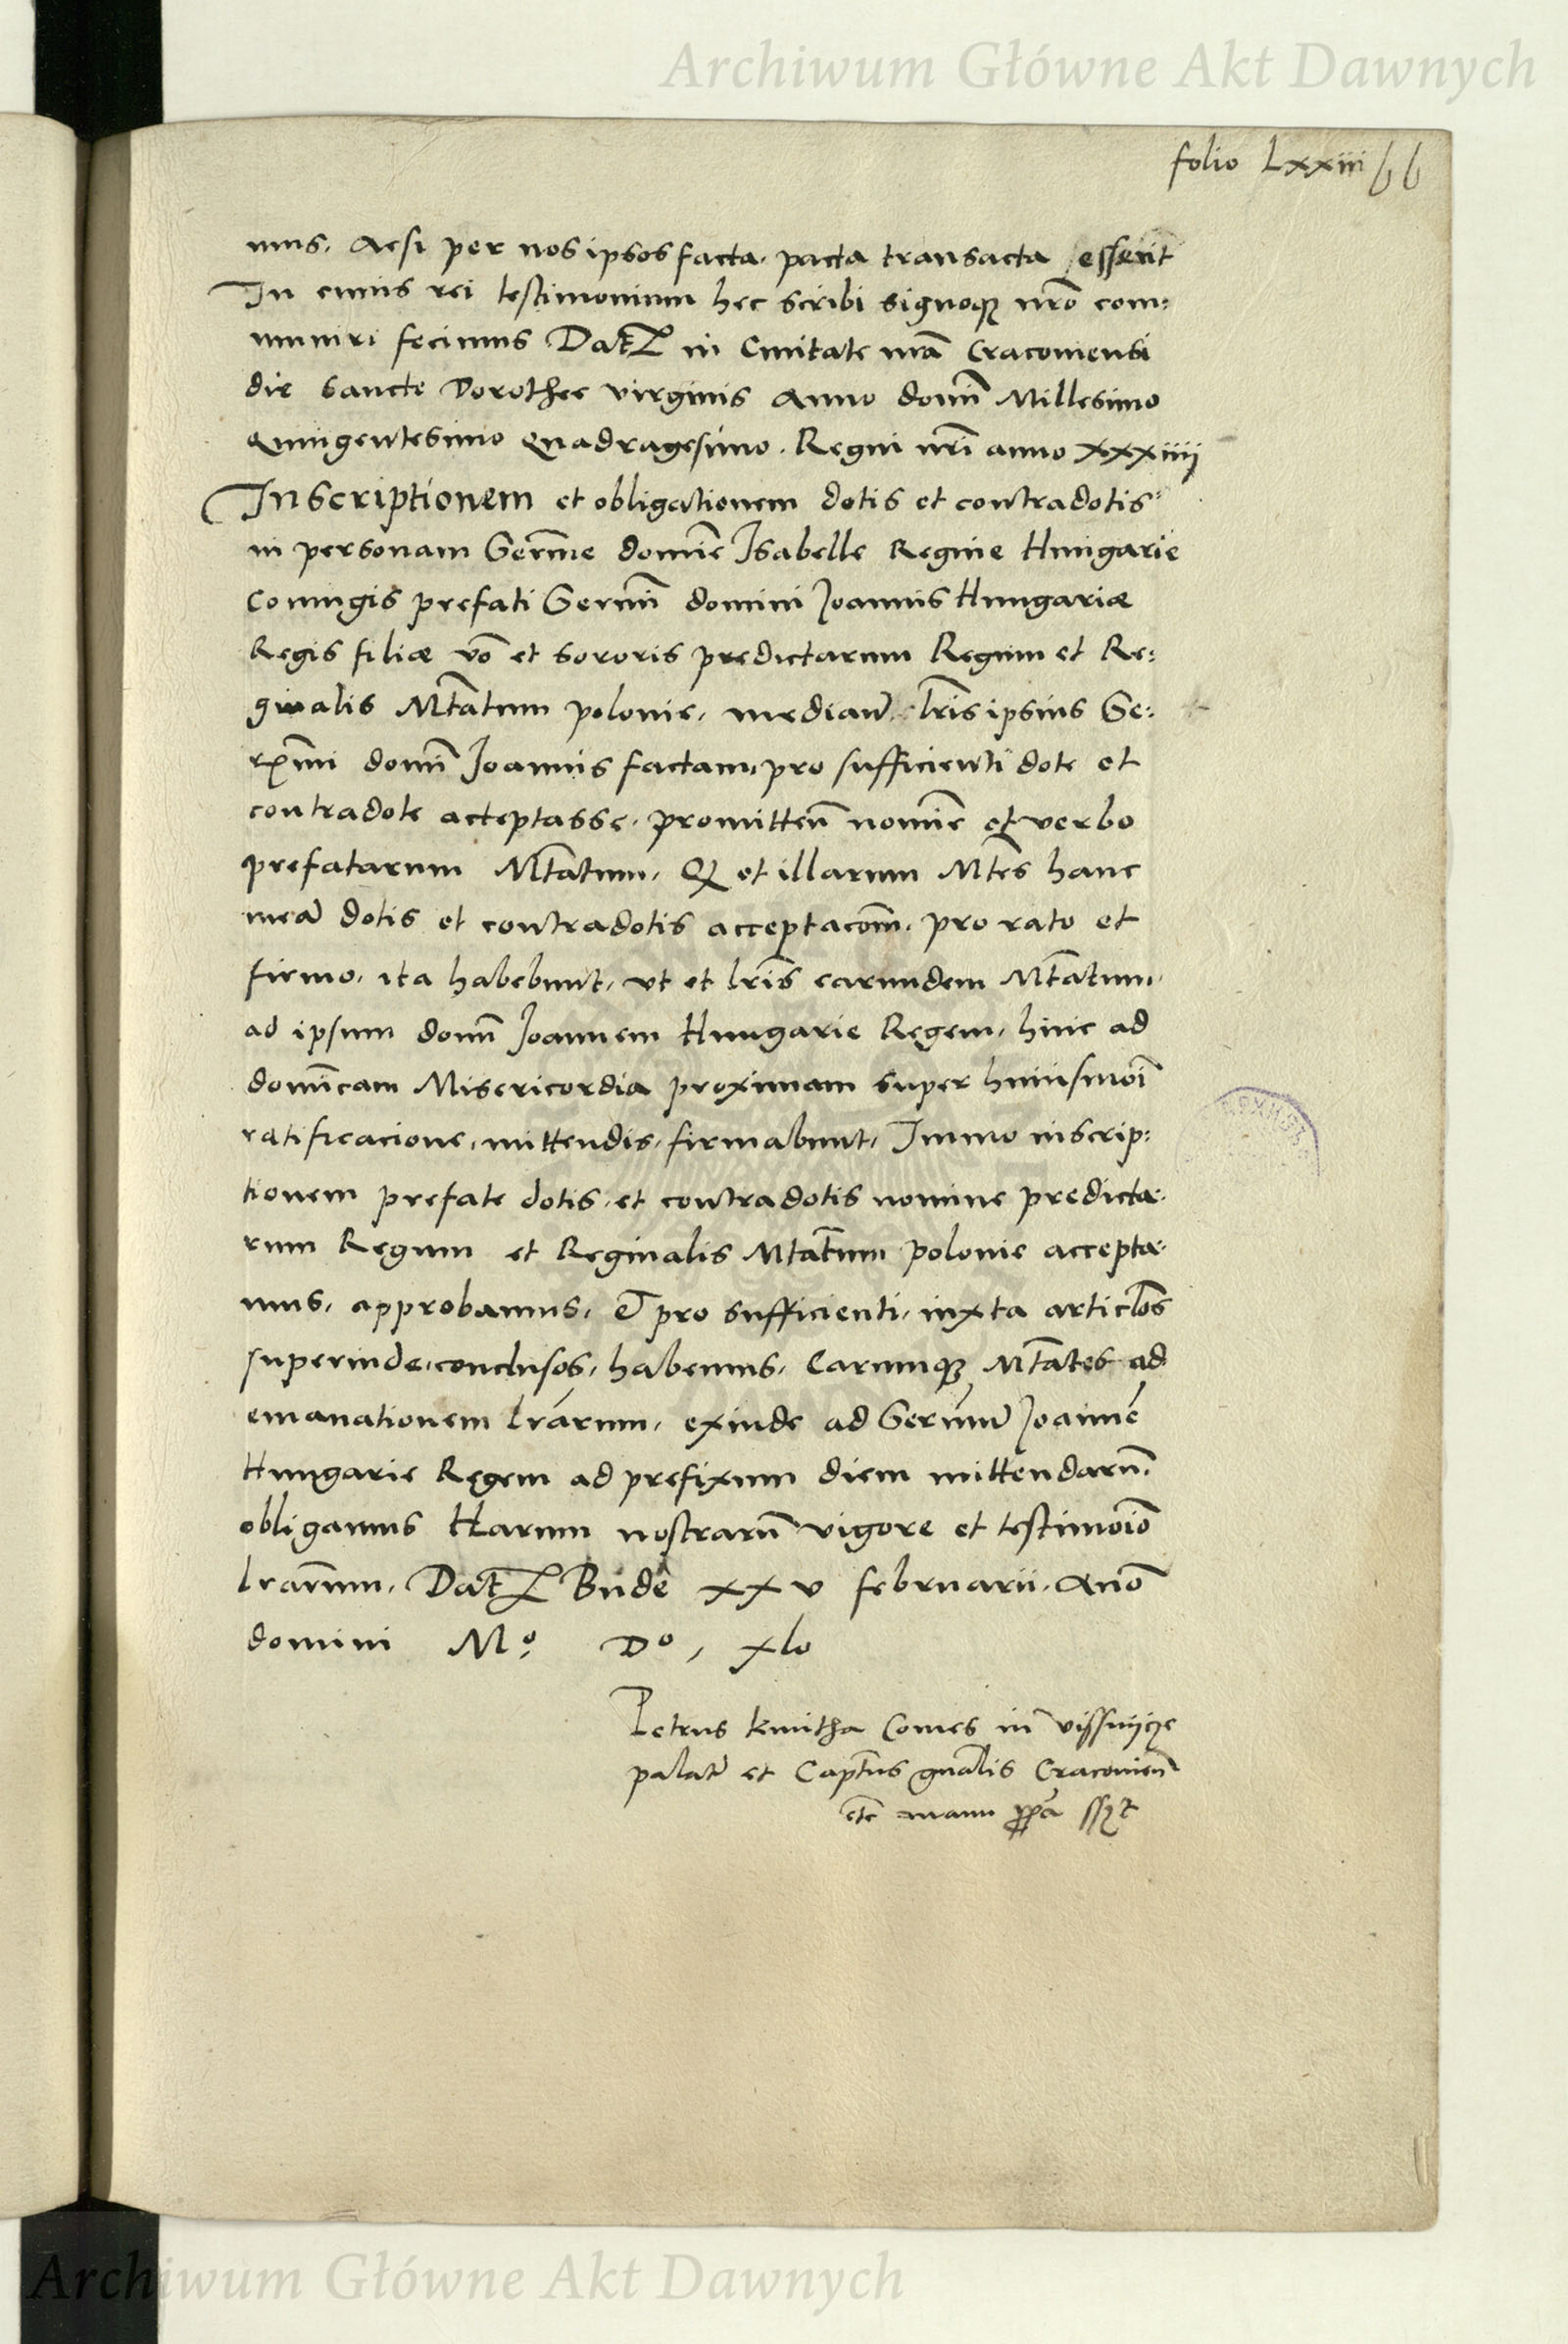 Archiwum Główne Akt Dawnych
folio Lxxiii 66
mus. Acsi per nos ipsos facta. pacta transacta essent
In cuius rei testimonium hec scribi signoq; nr̃o com:
muniri fecimus Dat̃ in Ciuitate nrã Cracouiensi
die Sancte Dorothee virginis Anno domĩ Millesimo
Quingentesimo Quadragesimo. Regni nr̃i anno xxxiiij
Inscriptionem et obligationem dotis et contradotis
in personam Serm̃e domiẽ Isabelle Regine Hungarie
Coniugis prefati Sermĩ domini Joannis Hungariæ
Regis filiæ võ et sororis predictarum Regum et Re:
ginalis Mt̃atum polonie, mediañ lr̃is ipsius Se:
rẽmi domĩ Joannis factam, pro sufficienti dote et
contradote acceptasse. promitteñ nomiẽ et verbo
prefatarum Mt̃atum, Q et illarum Mt̃es hanc
meã dotis et contradotis acceptacõm. pro rato et
firmo. ita habebunt, vt et lr̃is earundem Mt̃atum.
ad ipsum domĩ Joannem Hungarie Regem, hinc ad
domĩcam Misericordia proximam super huiusmoĩ
ratificacione, mittendis, firmabunt, Immo inscrip:
tionem prefate dotis, et contradotis nomine predicta:
rum Regum et Reginalis Mtat̃um polonie accepta:
mus, approbamus, Et pro sufficienti, iuxta articl̃os
superinde, conclusos, habemus, Earumq; Mt̃ates ad
emanationem lrárum, exinde ad Sermũ Joannẽ
Hungarie Regem ad prefixum diem mittendarũ
obligamus Harum nostrarũ vigore et testimoĩo
lrar̃um. Dat̃ Budẽ xxv februarii. Anõ
domini Mº, Dº, xlo
Petrus kmitha Comes in vissnijcze
palatĩ et Capt̃us gnãlis Cracouieñ
et̃c manu pp̃a sszt
Archiwum Główne Akt Dawnych